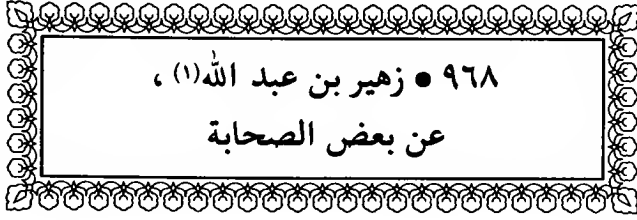 ٩٦٨ • زهير بن عبد الله(١) ،
عن بعض الصحابة